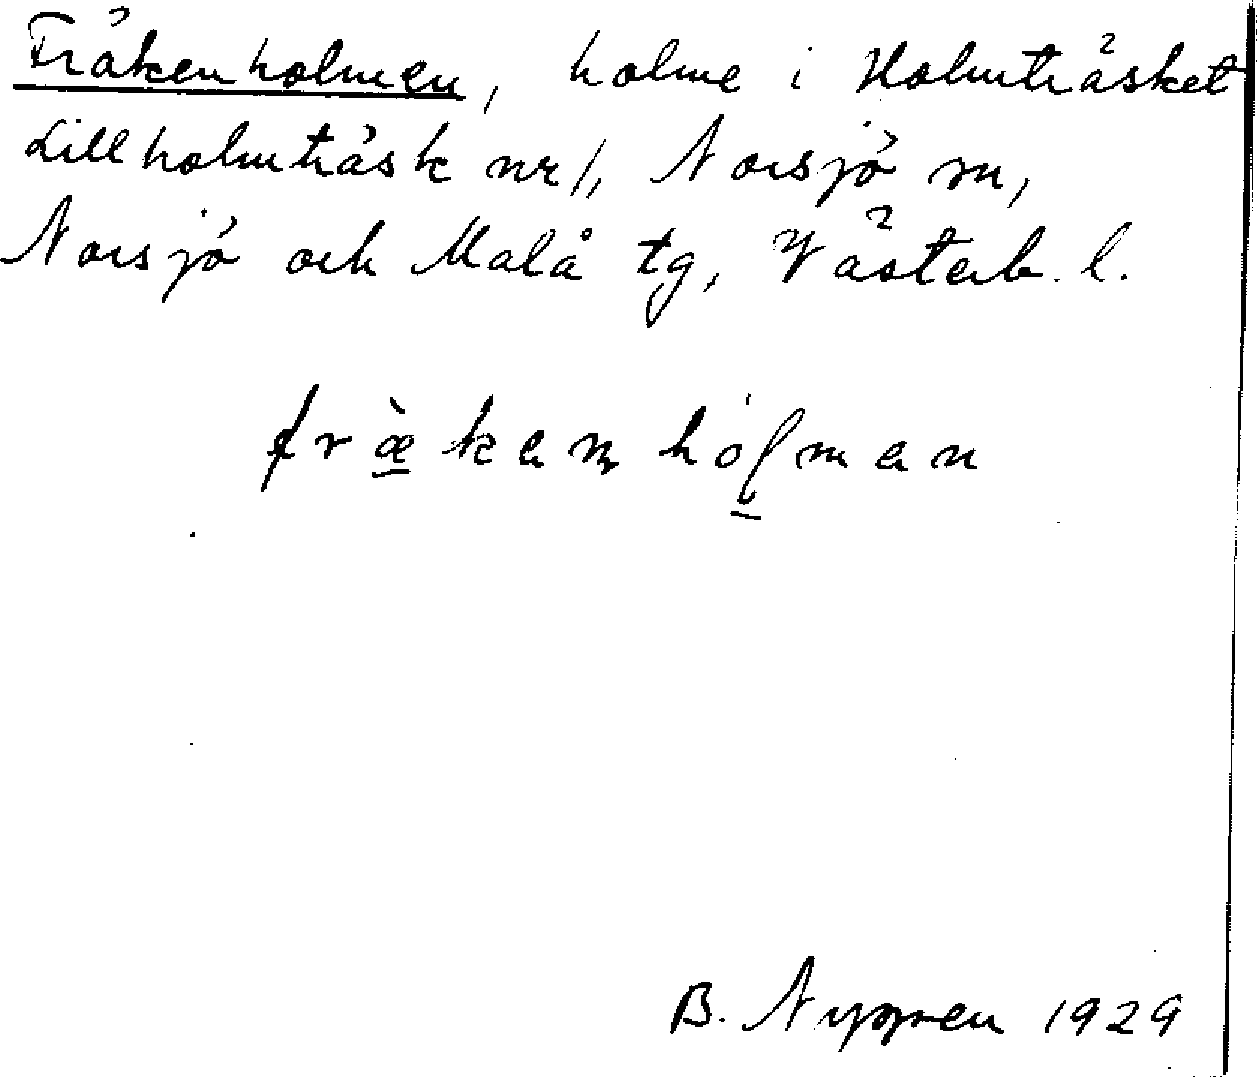 Fräkenholmen, holme i Holmträsket
Lillholmträsk nr 1, Norsjö sn,
Norsjö och Malå tg, Västerb. l.
fræ̀kan hólman
B. Nygren 1929